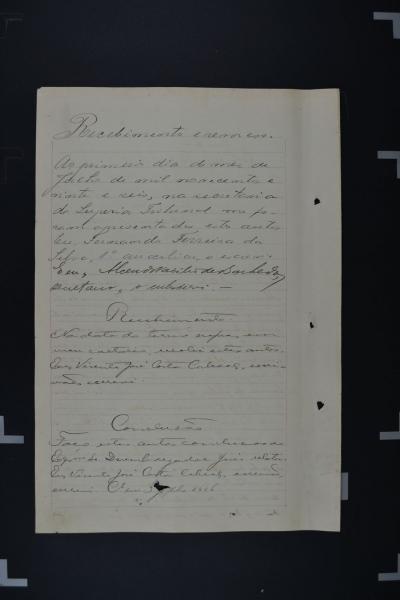 Recebimento e remessa.
Ao primeiro dia do mez de
Julho de mil novecentos e
vinte e seis, na secretaria
do Superior Tribunal me fo-
ram apresentados estes autos.
Eu, Fernando Ferreira da
Silva, 1º escrevi.
Eu, de
secretario, o subscrevi. —
Recebimento
Na data do termo supra, em
meu cartorio, recebi estes autos.
Eu, Vicente José Costa Cabral, escri-
vão, escrevi.
Conclusão
Faço estes autos conclusos ao
Exmº. Sr. Desembargador Juiz relator.
Eu, Vicente José Costa Cabral, escrivão,
escrevi.